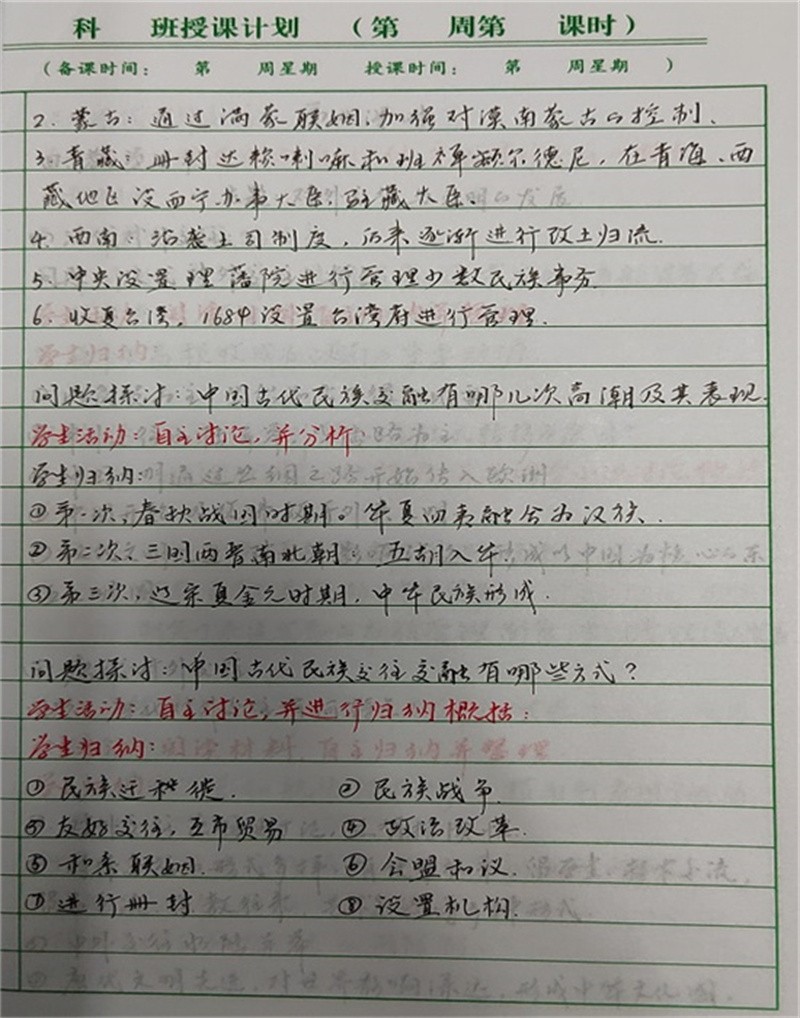 科 班授课计划 （第 周第 课时）
（备课时间： 第 周星期 授课时间： 第 周星期 ）
2. 蒙古：通过满蒙联姻，加强对漠南蒙古的控制.
3. 青藏：册封达赖喇嘛和班禅额尔德尼，在青海、西
藏地区设西宁办事大臣、驻藏大臣.
4. 西南：沿袭土司制度，后来逐渐进行改土归流.
5. 中央设置理藩院进行管理少数民族事务.
6. 收复台湾，1684设置台湾府进行管理.
学生归纳：
问题探讨：中国古代民族交融有哪几次高潮及其表现.
学生活动：自主讨论，并分析
学生归纳：
①第一次，春秋战国时期。华夏四夷融合为汉族.
②第二次，三国两晋南北朝：五胡入华.
③第三次，辽宋夏金元时期，中华民族形成.
问题探讨：中国古代民族交往交融有哪些方式？
学生活动：自主讨论，并进行归纳概括：
学生归纳：
①民族迁徙. ②民族战争.
③友好交往，互市贸易 ④政治改革.
⑤和亲联姻. ⑥会盟和议.
⑦进行册封 ⑧设置机构.